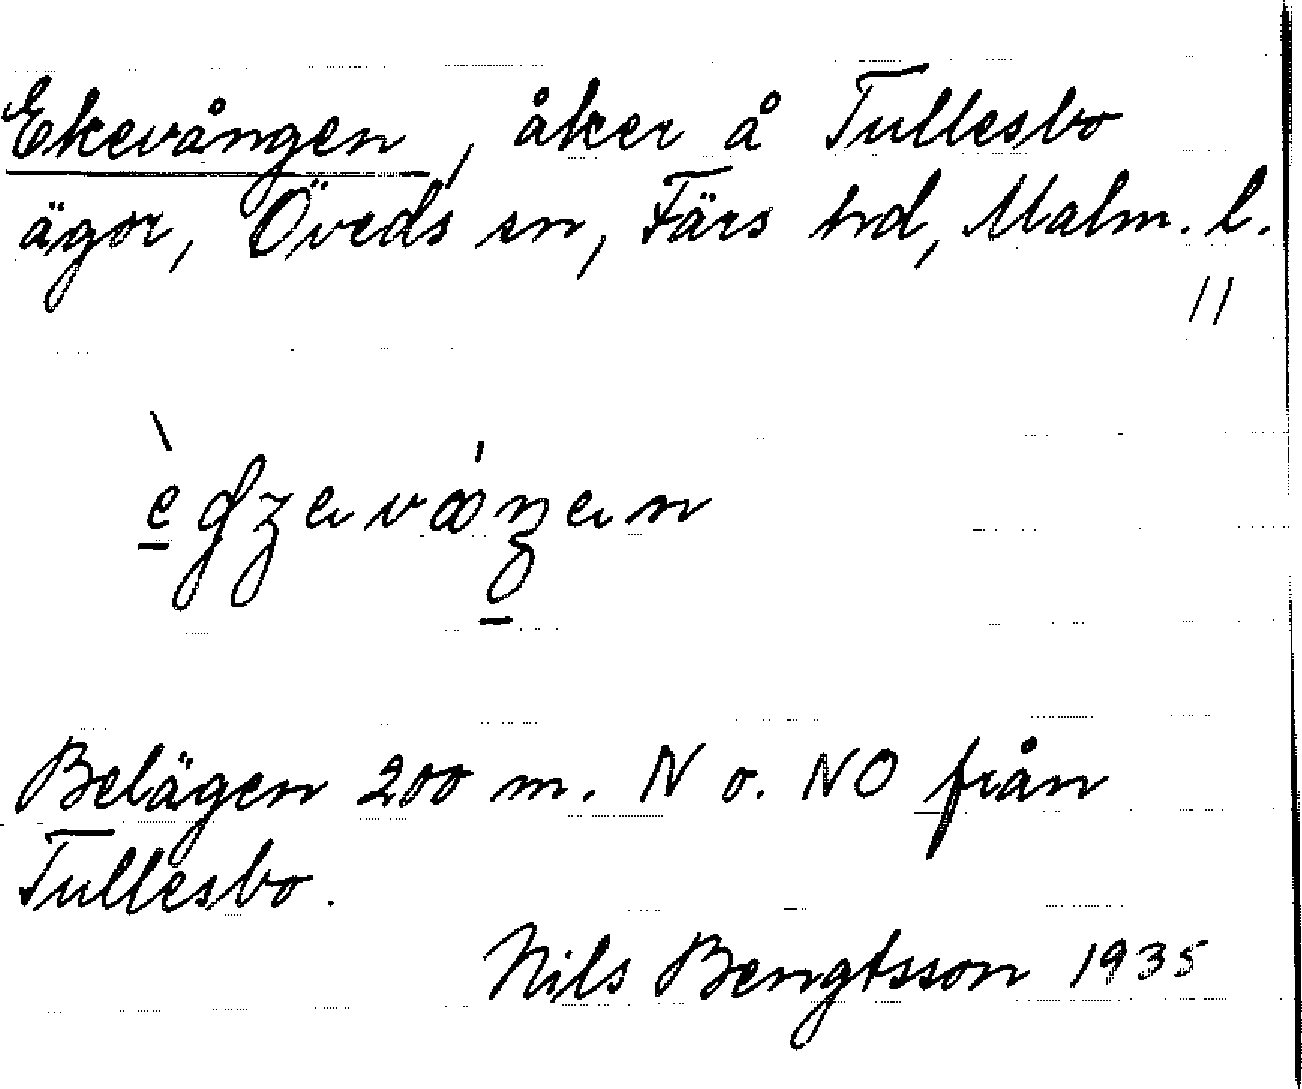 Ekevången, åker å Tullesbo
ägor, Öveds sn, Färs hd, Malm. l.
11
Belägen 200 m. N o. NO från
Tullesbo.
Nils Bengtsson 1935